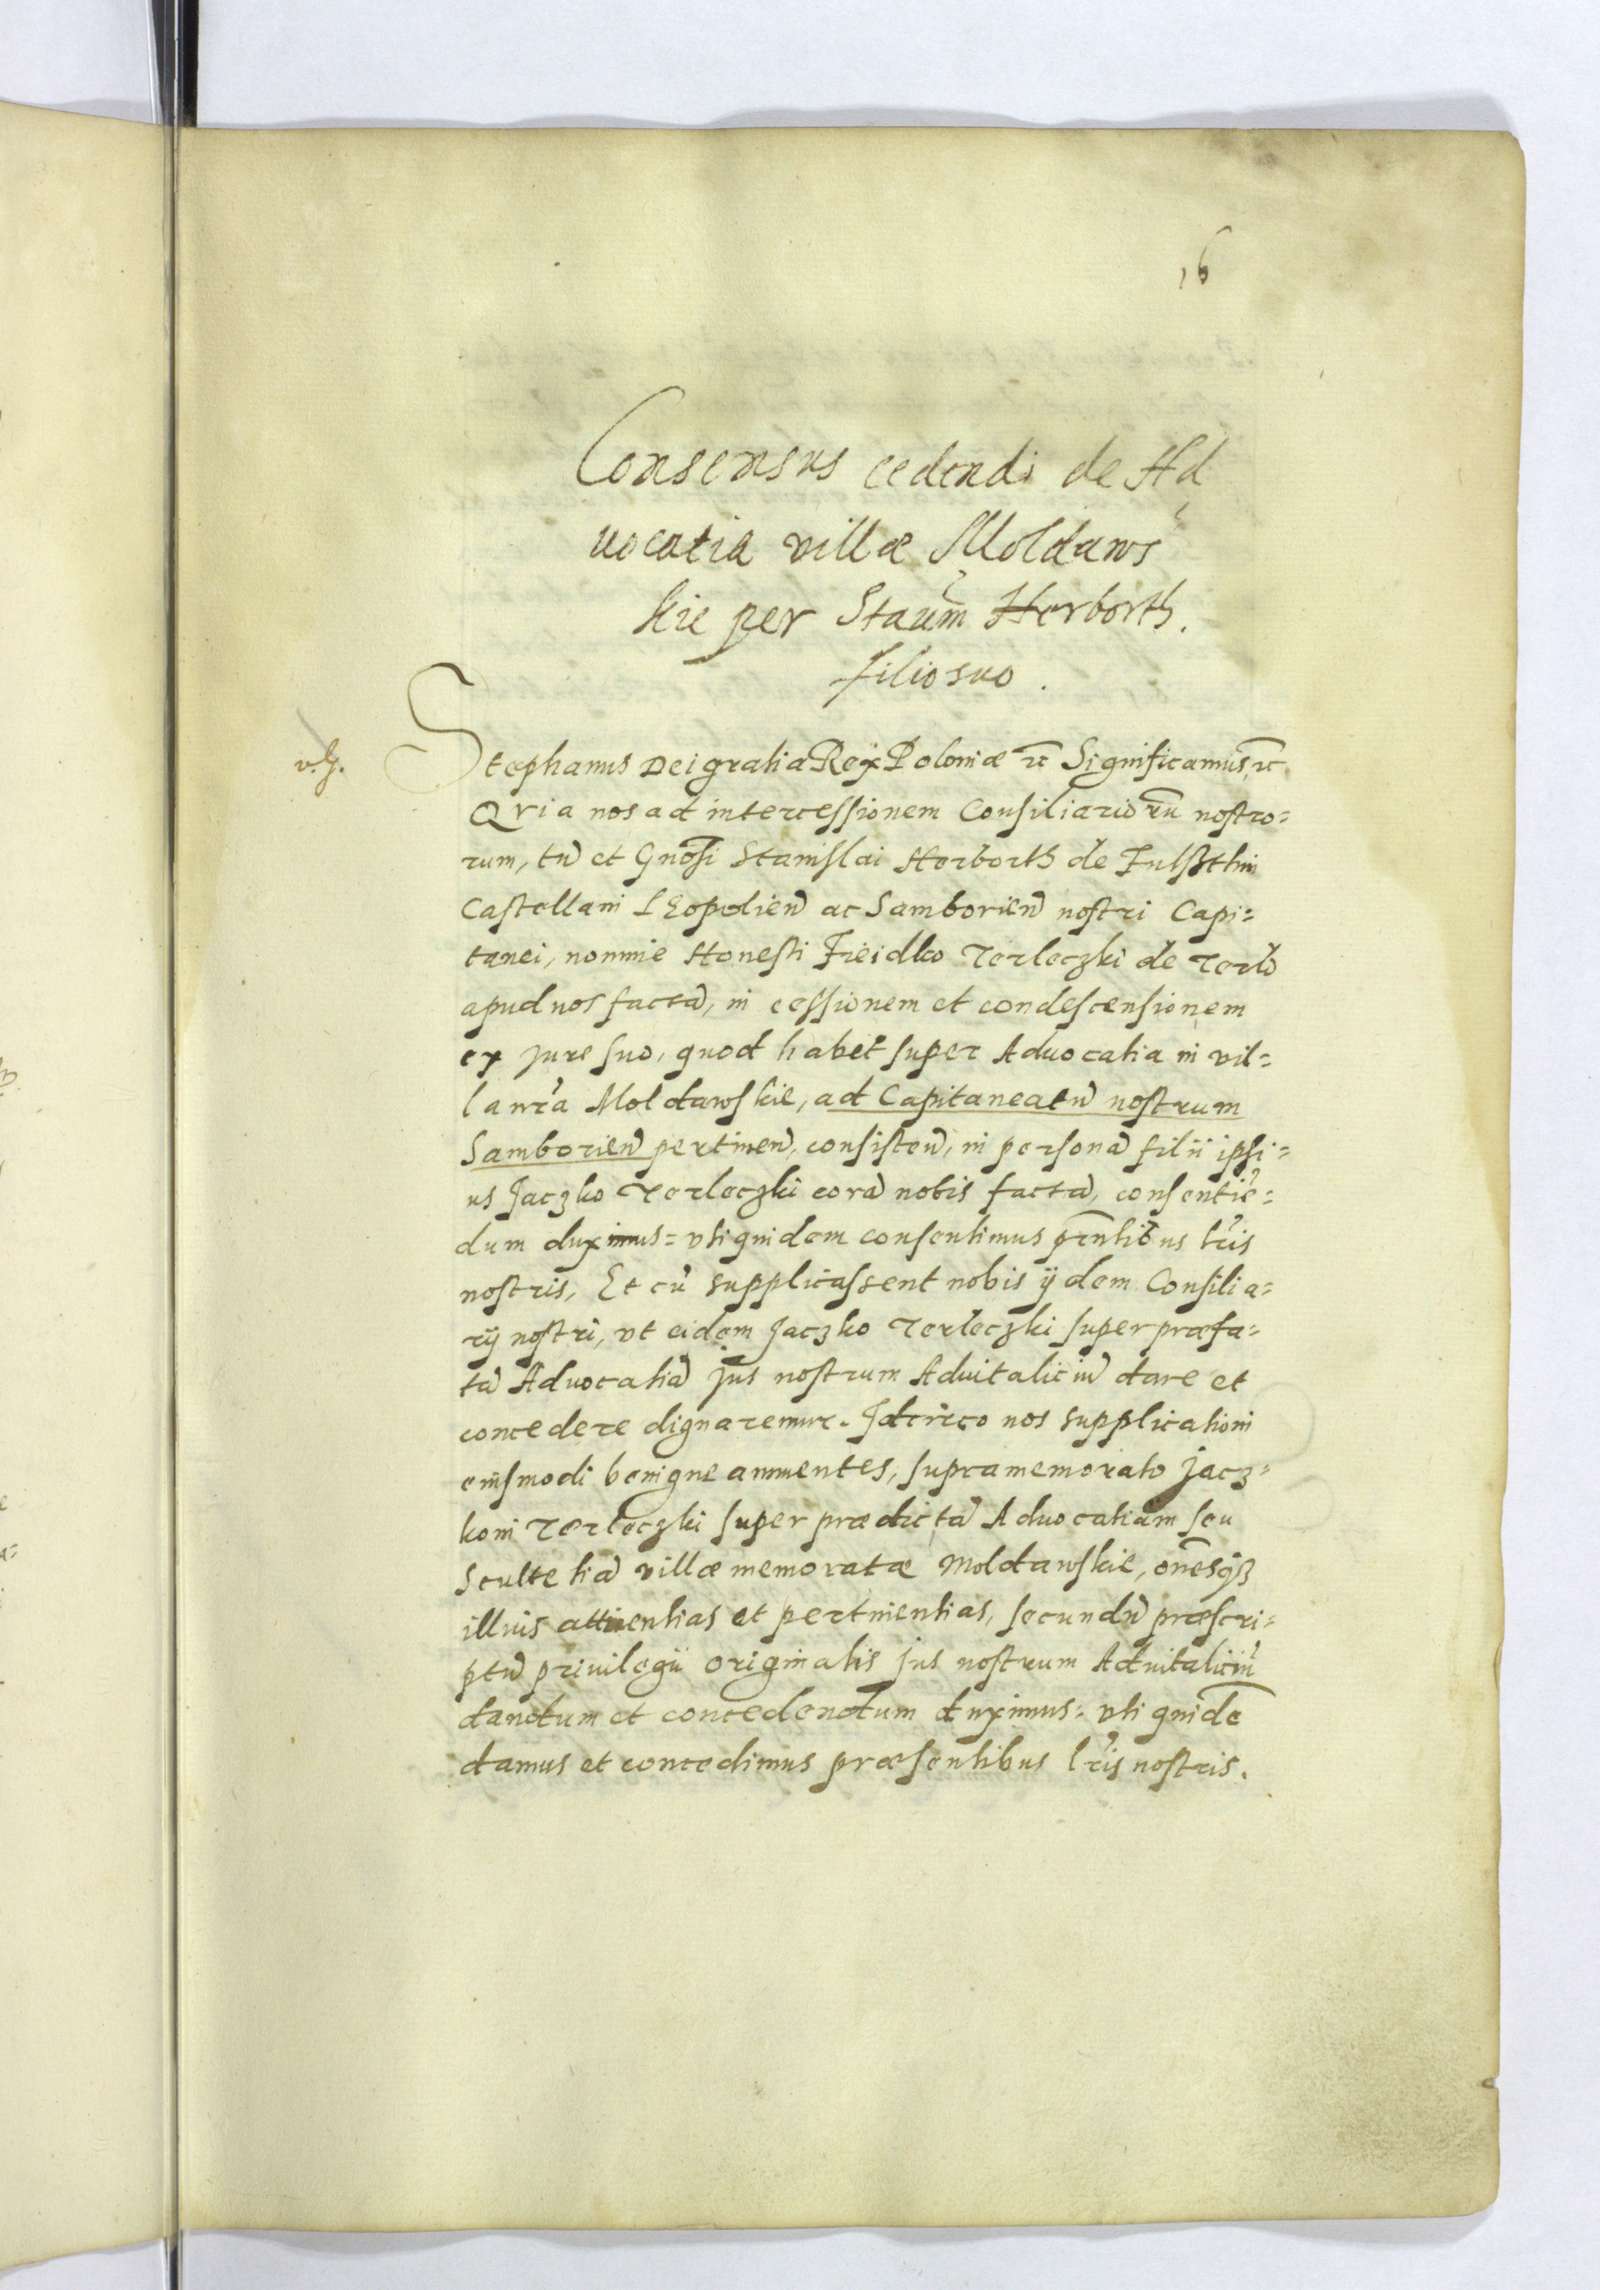 16
Consensus cedendi de Ad
uocatia villæ Moldaws
kie per Staūm Herborth.
filio suo.
v. g.
Stephanus Dei gratia Rex Poloniæ &c Significamus, &c
Qvia nos ad intercessionem Consiliariorū nostro=
rum, tū et Gnōsi Stanislai Herborth de Fulsthin
Castellani LEopolien̄ ac Samborien̄ nostri Capi=
tanei, nomine Honesti Fiedko Terleczki de Terlo
apud nos factā, in cessionem et condescensionem
ex jure suo, quod habet super Aduocatia in vil=
la nr̄a Moldawskie, ad Capitaneatū nostrum
Samborien̄ pertinen̄, consisten̄, in personā filii ipsi=
us Jaczko Terleczki corā nobis factā, consentiē=
dum duximus= vti quidem consentimus pr̄ntibus lr̄is
nostris, Et cū supplicassent nobis ijdem Consilia=
rij nostri, vt eidem Jaczko Terleczki super præfa=
tā Aduocatiā jus nostrum Aduitaliciū dare et
concedere dignaremur. Idcirco nos supplicationi
eiusmodi benigne annuentes, supramemorato Jacz=
koni Terleczki super prædictā Aduocatiam seu
Scultetiā villæ memoratæ Moldawskie, om̄esq3
illius attinentias et pertinentias, secundū præscri=
ptū priuilegii originalis jus nostrum Aduitaliciū
dandum et concedendum duximus= vti quidē
damus et concedimus præsentibus lr̄is nostris.